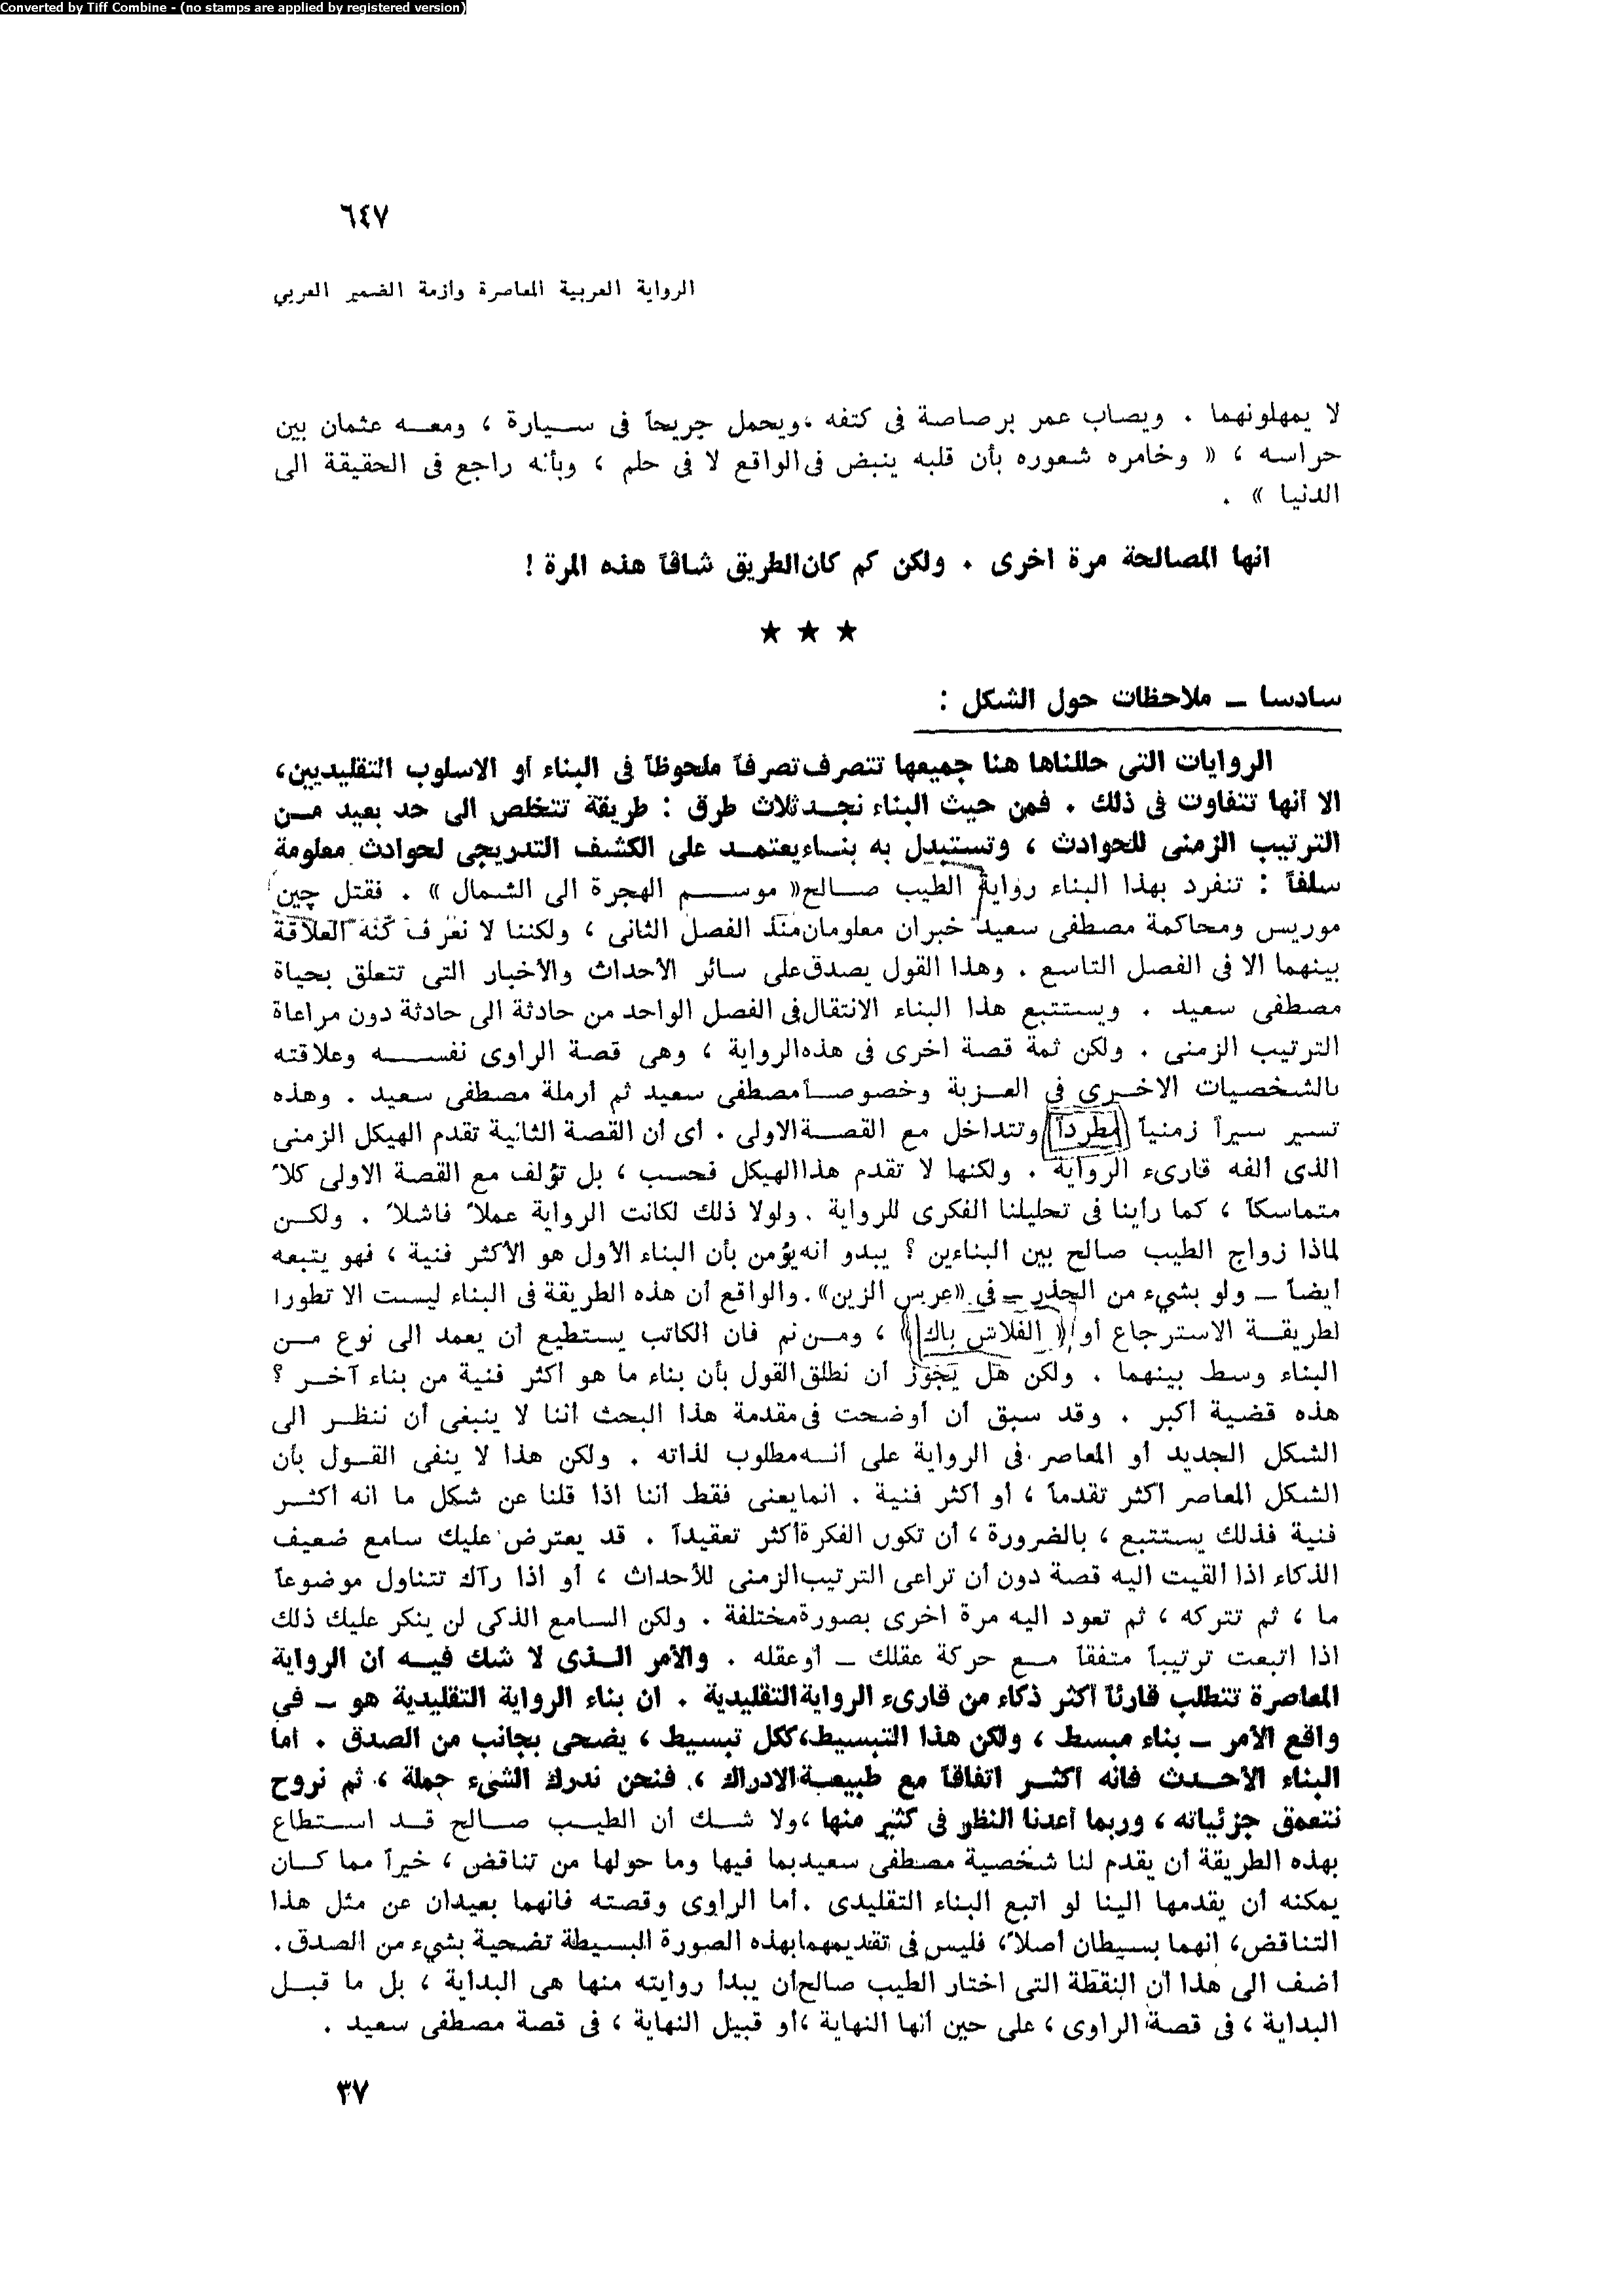 Converted by Tiff Combine - (no stamps are applied by registered version)
٦٤٧
الرواية العربية المعاصرة وأزمة الضمير العربي
لا يمهلونهما . ويصاب عمر برصاصة فى كتفه ،ويحمل جريحاً فى سيارة ، ومعه عثمان بين
حراسه ، « وخامره شعوره بأن قلبه ينبض فى الواقع لا فى حلم ، وبأنه راجع فى الحقيقة الى
الدنيا » .
انها المصالحة مرة اخرى . ولكن كم كان الطريق شاقاً هذه المرة !
★ ★ ★
سادسا – ملاحظات حول الشكل :
الروايات التى حللناها هنا جميعها تتصرف تصرفاً ملحوظاً فى البناء أو الاسلوب التقليديين،
الا أنها تتفاوت فى ذلك . فمن حيث البناء نجد ثلاث طرق : طريقة تتخلص الى حد بعيد من
الترتيب الزمنى للحوادث ، وتستبدل به بناء يعتمد على الكشف التدريجى لحوادث معلومة
سلفاً : تنفرد بهذا البناء رواية الطيب صالح « موسم الهجرة الى الشمال » . فقتل چين
موريس ومحاكمة مصطفى سعيد خبران معلومان منذ الفصل الثانى ، ولكننا لا نعرف كنه العلاقة
بينهما الا فى الفصل التاسع . وهذا القول يصدق على سائر الأحداث والأخبار التى تتعلق بحياة
مصطفى سعيد . ويستتبع هذا البناء الانتقال فى الفصل الواحد من حادثة الى حادثة دون مراعاة
الترتيب الزمنى . ولكن ثمة قصة اخرى فى هذه الرواية ، وهى قصة الراوى نفسه وعلاقته
بالشخصيات الاخرى فى العزبة وخصوصاً مصطفى سعيد ثم أرملة مصطفى سعيد . وهذه
تسير سيراً زمنياً مطرداً وتتداخل مع القصة الاولى . أى أن القصة الثانية تقدم الهيكل الزمنى
الذى ألفه قارىء الرواية . ولكنها لا تقدم هذا الهيكل فحسب ، بل تؤلف مع القصة الاولى كلاً
متماسكاً ، كما رأينا فى تحليلنا الفكرى للرواية . ولولا ذلك لكانت الرواية عملاً فاشلاً . ولكن
لماذا زواج الطيب صالح بين البناءين ؟ يبدو انه يؤمن بأن البناء الأول هو الأكثر فنية ، فهو يتبعه
أيضاً – ولو بشيء من الحذر – فى «عرس الزين» . والواقع أن هذه الطريقة فى البناء ليست الا تطورا
لطريقة الاسترجاع أو « الفلاش باك » ، ومن ثم فان الكاتب يستطيع أن يعمد الى نوع من
البناء وسط بينهما . ولكن هل يجوز أن نطلق القول بأن بناء ما هو أكثر فنية من بناء آخر ؟
هذه قضية أكبر . وقد سبق أن أوضحت فى مقدمة هذا البحث أننا لا ينبغى أن ننظر الى
الشكل الجديد أو المعاصر فى الرواية على أنه مطلوب لذاته . ولكن هذا لا ينفى القول بأن
الشكل المعاصر أكثر تقدماً ، أو أكثر فنية . انما يعنى فقط أننا اذا قلنا عن شكل ما انه أكثر
فنية فذلك يستتبع ، بالضرورة ، أن تكون الفكرة أكثر تعقيداً . قد يعترض عليك سامع ضعيف
الذكاء اذا ألقيت اليه قصة دون أن تراعى الترتيب الزمنى للأحداث ، أو اذا رآك تتناول موضوعاً
ما ، ثم تتركه ، ثم تعود اليه مرة اخرى بصورة مختلفة . ولكن السامع الذكى لن ينكر عليك ذلك
اذا اتبعت ترتيباً متفقاً مع حركة عقلك – أو عقله . والأمر الذى لا شك فيه ان الرواية
المعاصرة تتطلب قارئاً أكثر ذكاء من قارىء الرواية التقليدية . ان بناء الرواية التقليدية هو – في
واقع الأمر – بناء مبسط ، ولكن هذا التبسيط، ككل تبسيط ، يضحى بجانب من الصدق . أما
البناء الأحدث فانه أكثر اتفاقاً مع طبيعة الادراك ، فنحن ندرك الشيء جملة ، ثم نروح
نتعمق جزئياته ، وربما أعدنا النظر فى كثير منها ،ولا شك أن الطيب صالح قد استطاع
بهذه الطريقة أن يقدم لنا شخصية مصطفى سعيد بما فيها وما حولها من تناقض ، خيراً مما كان
يمكنه أن يقدمها الينا لو اتبع البناء التقليدى . أما الراوى وقصته فانهما بعيدان عن مثل هذا
التناقض، انهما بسيطان أصلاً، فليس فى تقديمهما بهذه الصورة البسيطة تضحية بشيء من الصدق.
أضف الى هذا أن النقطة التى اختار الطيب صالح أن يبدأ روايته منها هى البداية ، بل ما قبل
البداية ، فى قصة الراوى ، على حين أنها النهاية ،أو قبيل النهاية ، فى قصة مصطفى سعيد .
٣٧